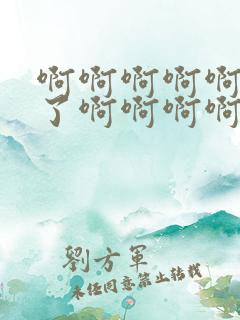 啊啊啊啊啊
了啊啊啊啊
劉方軍
未经同意禁止转载